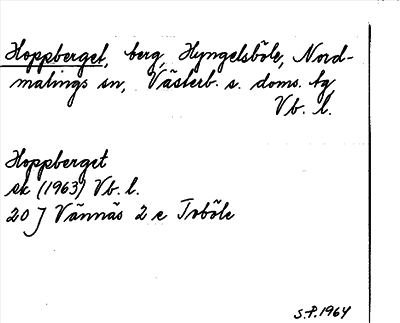 Hoppberget, berg, Hyngelsböle, Nord-
malings sn, Västerb. s. doms. bg
Vb. l.
Hoppberget
ek (1963) Vb. l.
20 J Vännäs 2 e Torböle
S.P. 1964